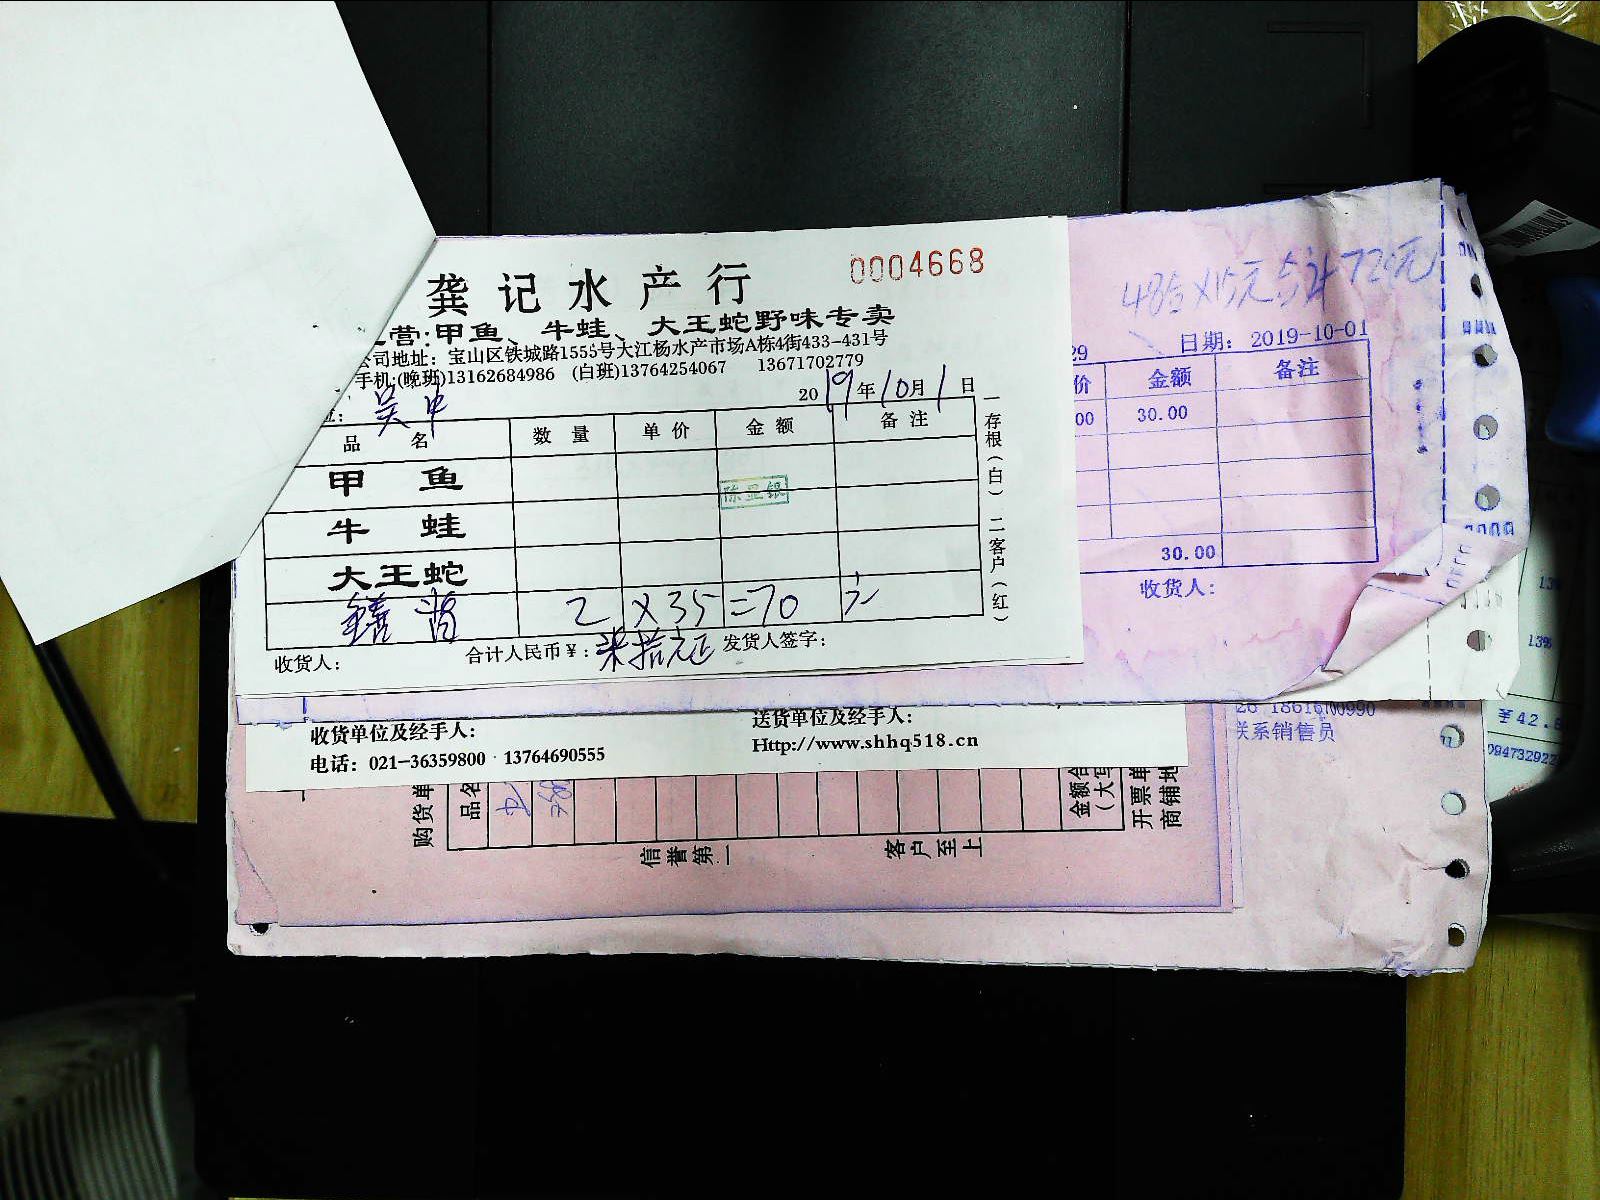 龚记水产行
0004668
营:甲鱼、牛蛙、大王蛇野味专卖
公司地址：宝山区铁城路1555号大江杨水产市场A栋4街433-431号
手机:(晚班)13162684986 (白班)13764254067 13671702779
吴中
2019年10月1日
品名 数量 单价 金额 备注
甲鱼
牛蛙
大王蛇
2 X35 =70
收货人： 合计人民币￥：柒拾元正 发货人签字：
一存根（白） 二客户（红）
720元
29 日期： 2019-10-01
价 金额 备注
00 30.00
30.00
收货人：
收货单位及经手人： 送货单位及经手人：
电话：021-36359800 13764690555 Http://www.shhq518.cn
18616700990
联系销售员
购货单
品名
金额合
(大写
开票单
商铺地
信誉第一 客户至上
13%
13%
￥42.